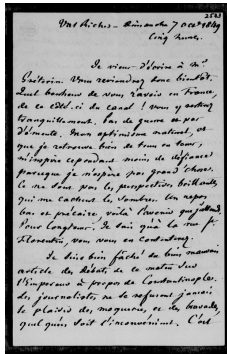 2523
Val Richer - Dimanche 7 oct 1849
Cinq heures.
Je viens d'écrire à Mr
Vous reviendrez donc bientôt.
Quel bonheur de vous savoir en France,
de ce côté-ci du canal ! Vous y resterez
tranquillement. Pas de guerre et pas
d'émeute. Mon optimisme naturel, et
que je retrouve bien de tems en tems,
m'inspire cependant moins de défiance
parceque je n'espère pas grand chose.
Ce ne sont pas les perspectives brillantes
qui me cachent les sombres. Un repos
bas et précaire, voilà l'avenir que j'attends.
Pour longtems. Je sais qu'à la rue St
Florentin, vous vous en contenterez.
Je suis bien fâché du bien mauvais
article des Débats de ce matin sur
l'Empereur à propos de Constantinople.
Les journalistes ne se refusent jamais
le plaisir des moqueries et des bravades,
quel qu'en soit l'inconvénient. C'est